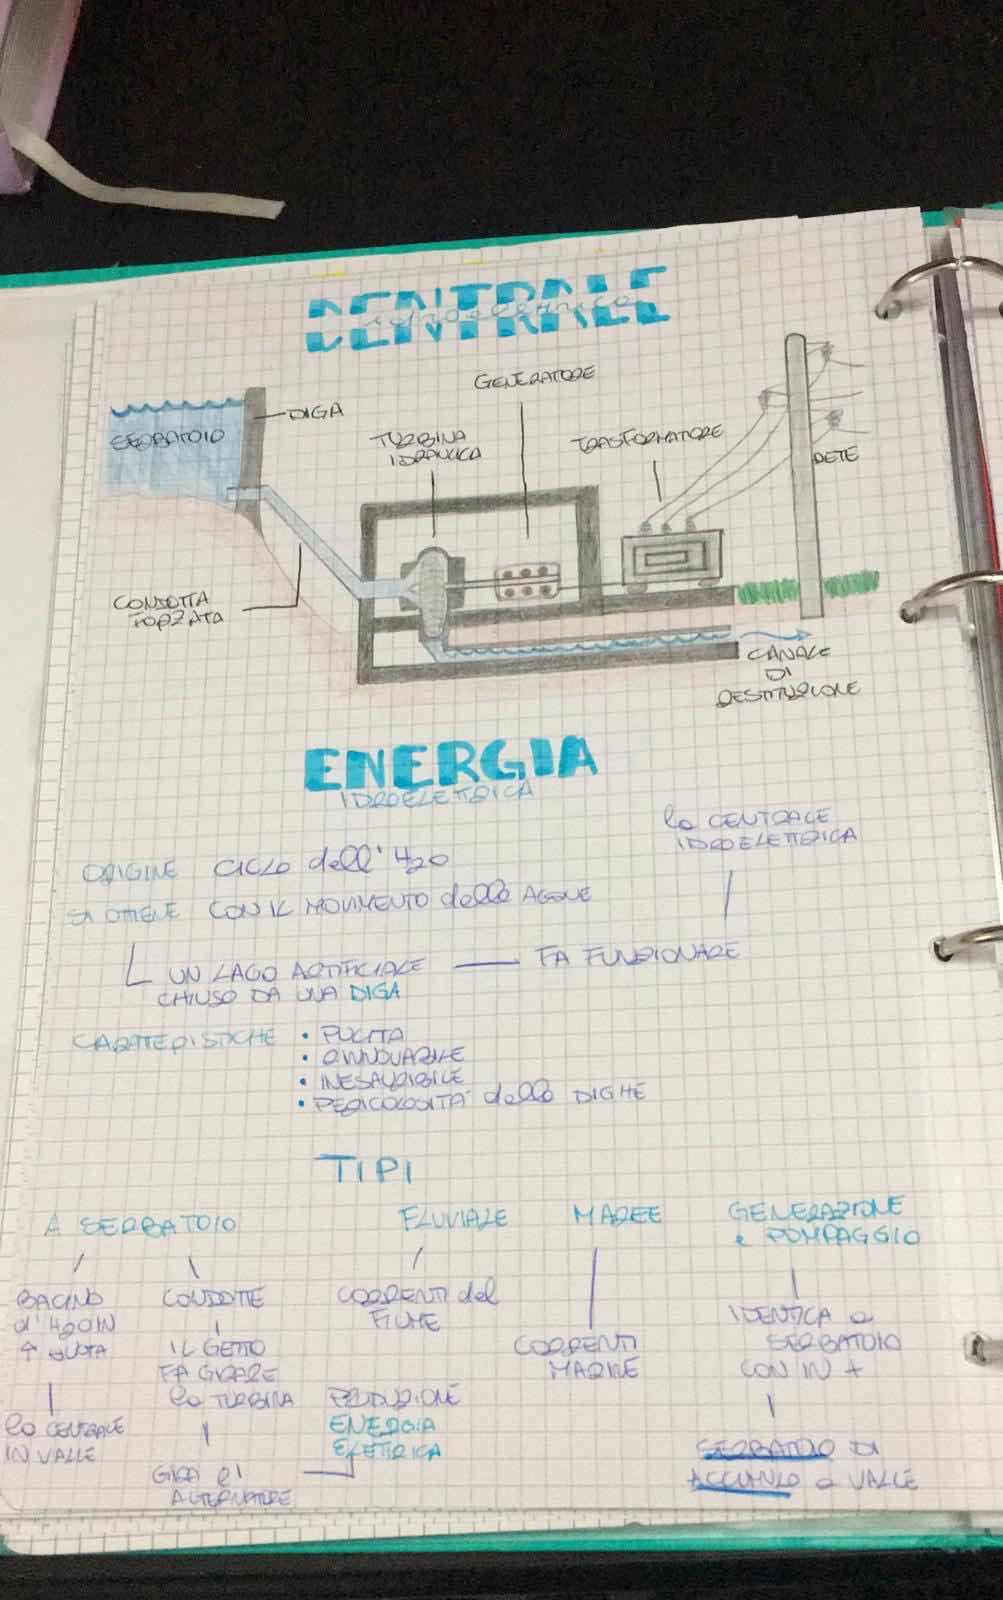 CENTRALE
idroelettrica
GENERATORE
DIGA
SERBATOIO
TURBINA
IDRAULICA
TRASFORMATORE
RETE
CONDOTTA
FORZATA
CANALE
DI
RESTITUZIONE
ENERGIA
IDROELETTRICA
la CENTRALE
IDROELETTRICA
ORIGINE CICLO dell'H2O
SI OTTIENE CON IL MOVIMENTO delle ACQUE
UN LAGO ARTIFICIALE — FA FUNZIONARE
CHIUSO DA UNA DIGA
CARATTERISTICHE • PULITA
• RINNOVABILE
• INESAURIBILE
• PERICOLOSITÀ delle DIGHE
TIPI
A SERBATOIO FLUVIALE MAREE GENERAZIONE
e POMPAGGIO
BACINO CONDOTTE CORRENTI del IDENTICA a
d'H2O IN FIUME SERBATOIO
↑ QUOTA IL GETTO CORRENTI CON IN +
FA GIRARE MARINE
la TURBINA PRODUZIONE
la CENTRALE ENERGIA
IN VALLE ELETTRICA SERBATOIO DI
GIRA l'
ALTERNATORE ACCUMULO a VALLE